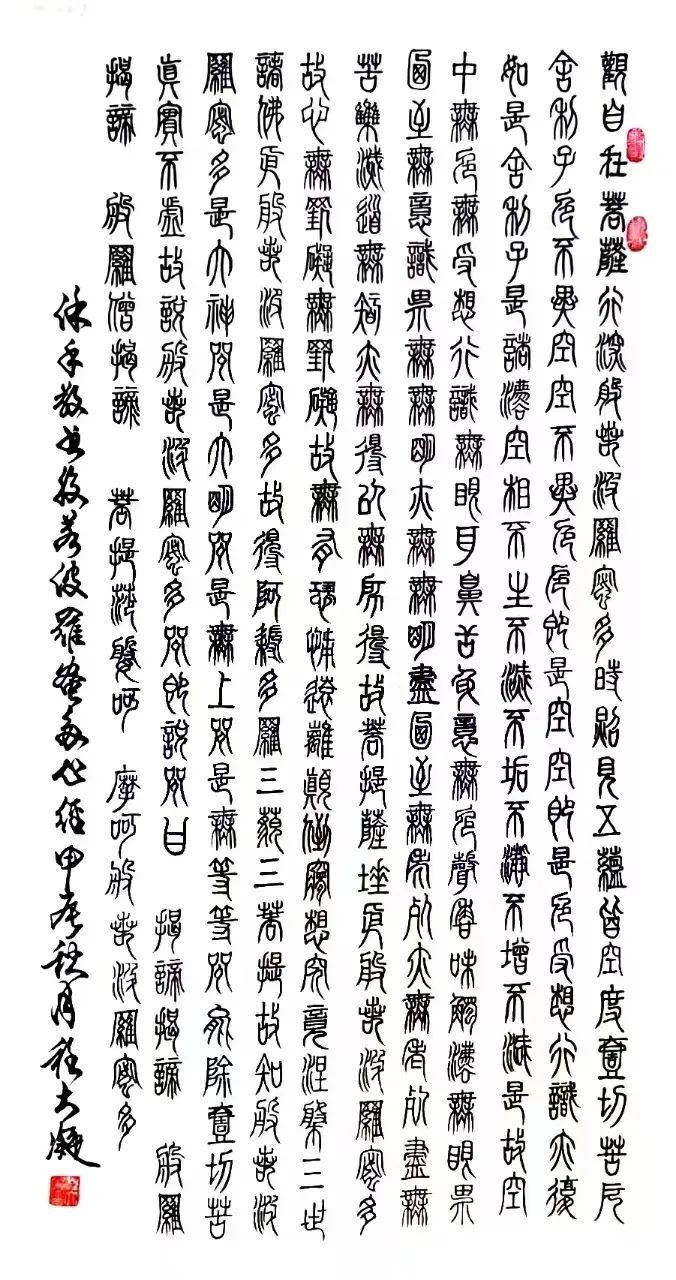 觀自在菩薩行深般若波羅密多時照見五蘊皆空度壹切苦厄
舍利子色不異空空不異色色即是空空即是色受想行識亦復
如是舍利子是諸灋空相不生不滅不垢不淨不增不減是故空
中無色無受想行識無眼耳鼻舌身意無色聲香味觸灋無眼界
乃至無意識界無無明亦無無明盡乃至無老死亦無老死盡無
苦集滅道無智亦無得以無所得故菩提薩埵依般若波羅密多
故心無罣礙無罣礙故無有恐怖遠離顛倒夢想究竟涅槃三世
諸佛依般若波羅密多故得阿耨多羅三藐三菩提故知般若波
羅密多是大神咒是大明咒是無上咒是無等等咒能除壹切苦
真實不虛故說般若波羅密多咒即說咒曰 揭諦揭諦 般羅
揭諦 般羅僧揭諦 菩提莎婆呵 摩呵般若波羅密多
沐手敬書般若波羅蜜多心經甲辰秋月